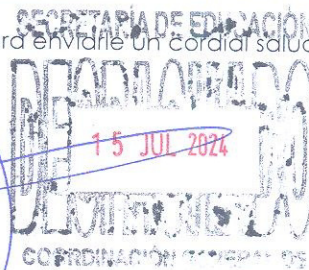 SECRETARÍA DE EDUCACIÓN
ra enviarle un cordial saluc
DESPACHADO
15 JUL 2024
COORDINACIÓN GENERAL DE